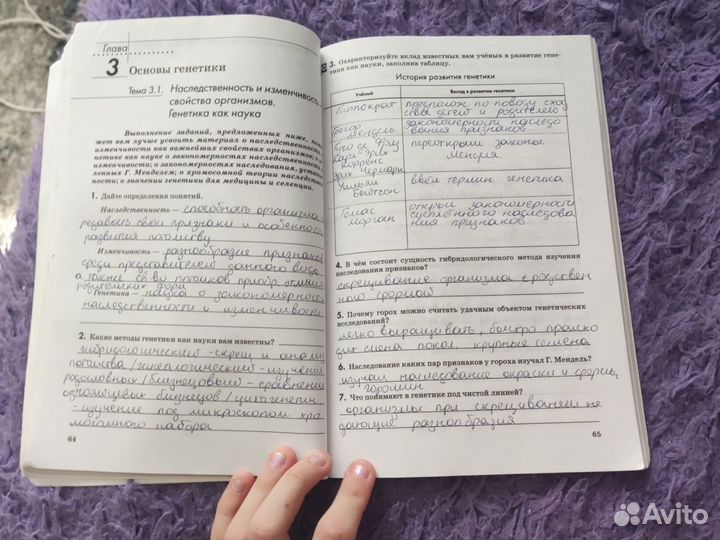 Глава
3 Основы генетики
Тема 3.1. Наследственность и изменчивость —
свойства организмов.
Генетика как наука
Выполнение заданий, предложенных ниже,
жет вам лучше усвоить материал о наследственнос
изменчивости как важнейших свойствах организмов; о
нетике как науке о закономерностях наследственнос
изменчивости; о закономерностях наследования, уста
ленных Г. Менделем; о хромосомной теории наследст
ности; о значении генетики для медицины и селекции.
1. Дайте определения понятий.
Наследственность — способность организма
редавать свои признаки и особенност
развития потомству
Изменчивость — разнообразие признаков
среди представителей данного вида
а также св-во потомков приобр. отличия
родительских форм
Генетика — наука о закономерност
наследственности и изменчивости
2. Какие методы генетики как науки вам известны?
гибридологический - скрещ и анализ
потомства / генеалогический - изучение
родословных / близнецовый - сравнение
однояйцевых близнецов / цитогенетич
- изучение под микроскопом хро
мосомного набора
64
3. Охарактеризуйте вклад известных вам учёных в развитие гене-
тики как науки, заполнив таблицу.
История развития генетики
Учёный Вклад в развитие генетики
Гиппократ предполож по поводу сход
ства детей и родителей
Грегор Мендель закономерности наследо
вания признаков
Гуго де Фриз
Карл Эрих Корренс
Эрих Чермак
переоткрыли законы
Менделя
Уильям Бейтсон ввёл термин генетика
Томас Морган
открыл закономерност
сцепленного наследова
ния признаков
4. В чём состоит сущность гибридологического метода изучения
наследования признаков?
скрещивание организма с родствен
ной формой
5. Почему горох можно считать удачным объектом генетических
исследований?
легко выращивать, быстро происхо
дит смена покол. крупные семена
6. Наследование каких пар признаков у гороха изучал Г. Мендель?
изучал наследование окраски и формы
горошин
7. Что понимают в генетике под чистой линией?
организмы при скрещивании не
дающие разнообразия
65
Avito